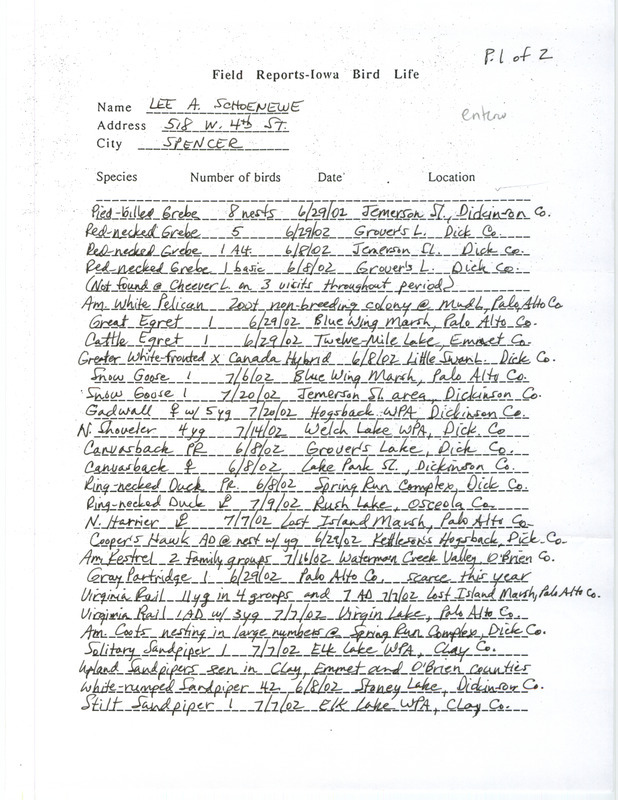 P.1 of 2
Field Reports-Iowa Bird Life
Name LEE A. SCHOENEWE
Address 518 W. 4th ST.
City SPENCER
Species Number of birds Date Location
Pied-billed Grebe 8 nests 6/29/02 Jemerson Sl., Dickinson Co.
Red-necked Grebe 5 6/29/02 Grover's L. Dick Co.
Red-necked Grebe 1 Alt. 6/8/02 Jemerson Sl. Dick Co.
Red-necked Grebe 1 basic 6/8/02 Grover's L. Dick Co.
(Not found @ Cheever L. on 3 visits throughout period)
Am. White Pelican 200+ non-breeding colony @ Mud L, Palo Alto Co
Great Egret 1 6/29/02 Blue Wing Marsh, Palo Alto Co.
Cattle Egret 1 6/29/02 Twelve-Mile Lake, Emmet Co.
Greater White-fronted X Canada Hybrid 6/8/02 Little Swan L. Dick Co.
Snow Goose 1 7/6/02 Blue Wing Marsh, Palo Alto Co.
Snow Goose 1 7/20/02 Jemerson Sl. area, Dickinson Co.
Gadwall ♀ w/ 5yg 7/20/02 Hogsback WPA Dickinson Co.
N. Shoveler 4yg 7/14/02 Welch Lake WPA, Dick. Co
Canvasback PR 6/8/02 Grover's Lake, Dick Co.
Canvasback ♀ 6/8/02 Lake Park Sl., Dickinson Co.
Ring-necked Duck PR 6/8/02 Spring Run Complex, Dick Co.
Ring-necked Duck ♀ 7/9/02 Rush Lake, Osceola Co.
N. Harrier ♀ 7/7/02 Lost Island Marsh, Palo Alto Co.
Cooper's Hawk AD @ nest w/ yg 6/29/02 Kettleson's Hogsback, Dick Co.
Am Kestrel 2 family groups 7/16/02 Waterman Creek Valley O'Brien Co.
Gray Partridge 1 6/29/02 Palo Alto Co. scarce this year
Virginia Rail 11yg in 4 groups and 7 AD 7/7/02 Lost Island Marsh, Palo Alto Co.
Virginia Rail 1AD w/ 3yg 7/7/02 Virgin Lake, Palo Alto Co.
Am. Coots nesting in large numbers @ Spring Run Complex, Dick Co.
Solitary Sandpiper 1 7/7/02 Elk Lake WPA, Clay Co.
Upland Sandpipers seen in Clay, Emmet and O'Brien counties
White-rumped Sandpiper 42 6/8/02 Stoney Lake, Dickinson Co.
Stilt Sandpiper 1 7/7/02 Elk Lake WPA, Clay Co.